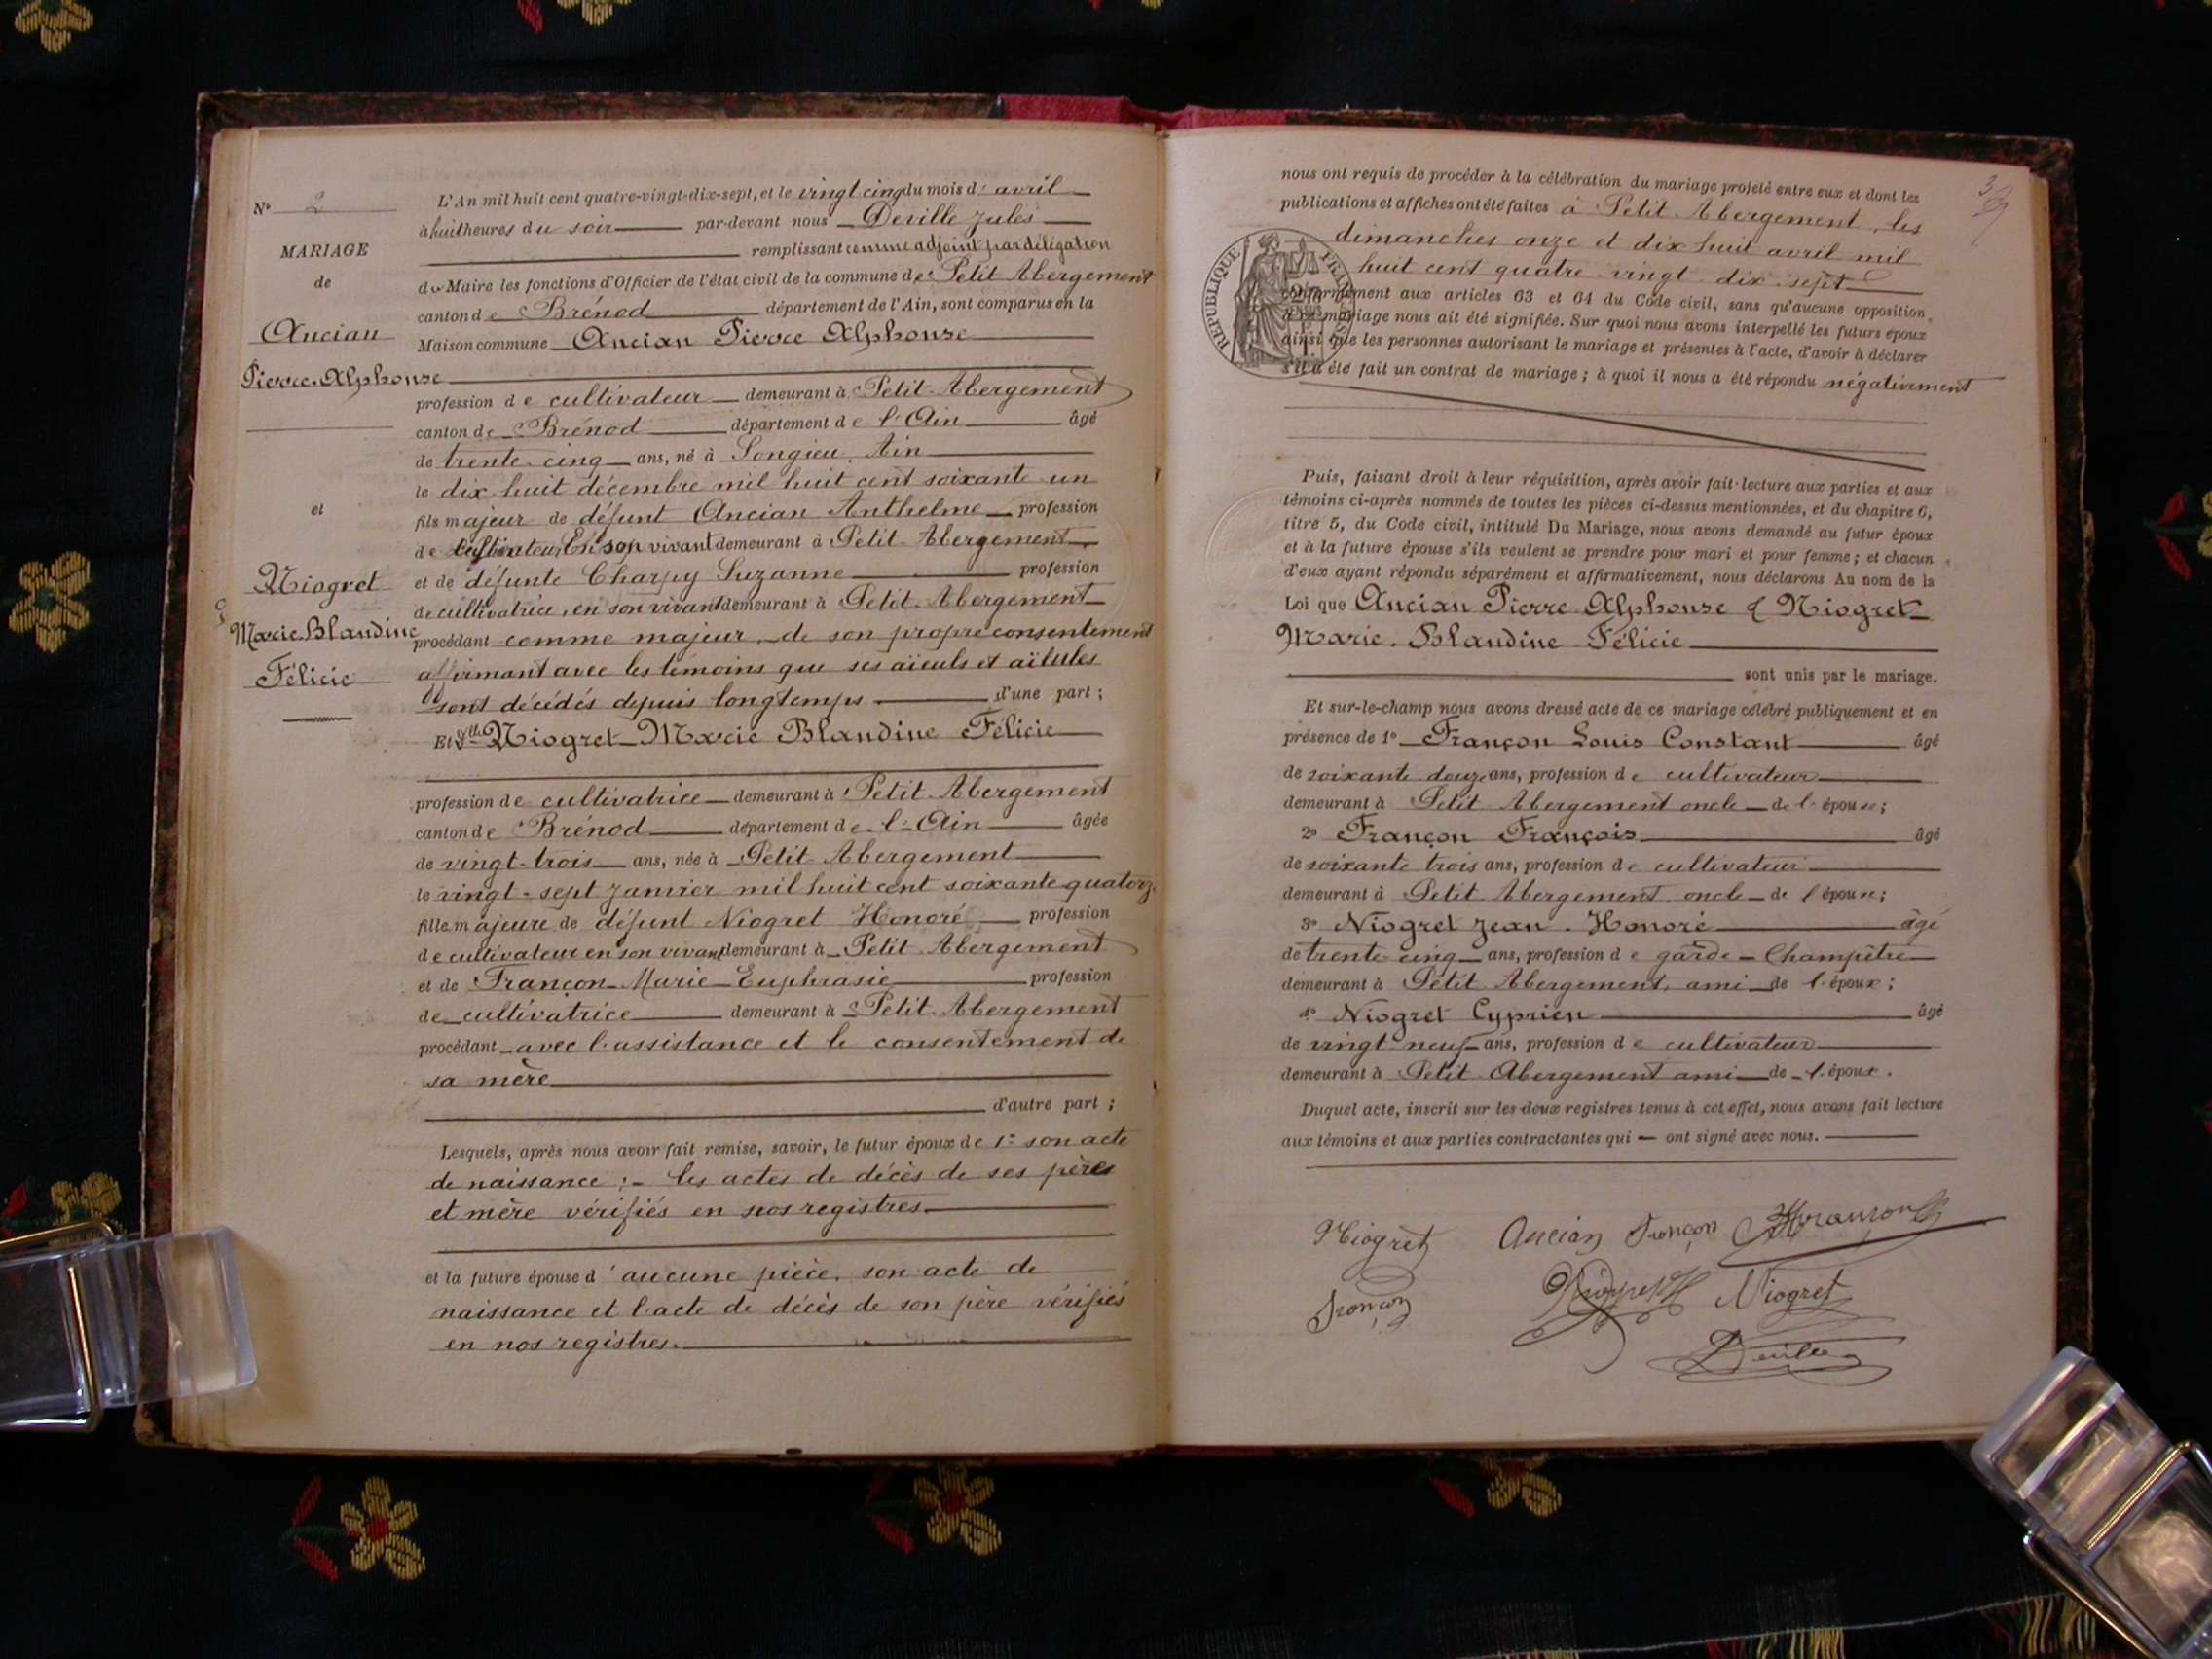 N° 2
MARIAGE
de
Ancian
Pierre-Alphonse
et
Niogret
Marie-Blandine
Félicie
L'An mil huit cent quatre-vingt-dix-sept, et le vingt cinq du mois d'avril
à huit heures du soir par-devant nous Deville Jules
remplissant comme adjoint par délégation
du Maire les fonctions d'Officier de l'état civil de la commune de Petit Abergement
canton de Brénod département de l'Ain, sont comparus en la
Maison commune Ancian Pierre Alphonse
profession de cultivateur demeurant à Petit-Abergement
canton de Brénod département de l'Ain âgé
de trente-cinq ans, né à Songieu, Ain
le dix huit décembre mil huit cent soixante un
fils majeur de défunt Ancian Anthelme profession
de cultivateur en son vivant demeurant à Petit-Abergement
et de défunte Charpy Suzanne profession
de cultivatrice, en son vivant demeurant à Petit-Abergement
procédant comme majeur, de son propre consentement
affirmant avec les témoins que ses aïeuls et aïeules
sont décédés depuis longtemps d'une part ;
Et Dlle Niogret Marie Blandine Félicie
profession de cultivatrice demeurant à Petit-Abergement
canton de Brénod département de l'Ain âgée
de vingt-trois ans, née à Petit-Abergement
le vingt-sept Janvier mil huit cent soixante quatorze
fille majeure de défunt Niogret Honoré profession
de cultivateur en son vivant demeurant à Petit Abergement
et de Françon Marie Euphrasie profession
de cultivatrice demeurant à Petit-Abergement
procédant avec l'assistance et le consentement de
sa mère
d'autre part ;
Lesquels, après nous avoir fait remise, savoir, le futur époux de 1° son acte
de naissance ;- les actes de décès de ses pères
et mère vérifiés en nos registres.
et la future épouse d'aucune pièce, son acte de
naissance et l'acte de décès de son père vérifiés
en nos registres.
3
nous ont requis de procéder à la célébration du mariage projeté entre eux et dont les
publications et affiches ont été faites à Petit Abergement, les
dimanches onze et dix huit avril mil
huit cent quatre-vingt-dix-sept
RÉPUBLIQUE FRANÇAISE
conformément aux articles 63 et 64 du Code civil, sans qu'aucune opposition
à ce mariage nous ait été signifiée. Sur quoi nous avons interpellé les futurs époux
ainsi que les personnes autorisant le mariage et présentes à l'acte, d'avoir à déclarer
s'il a été fait un contrat de mariage ; à quoi il nous a été répondu négativement
Puis, faisant droit à leur réquisition, après avoir fait lecture aux parties et aux
témoins ci-après nommés de toutes les pièces ci-dessus mentionnées, et du chapitre 6,
titre 5, du Code civil, intitulé Du Mariage, nous avons demandé au futur époux
et à la future épouse s'ils veulent se prendre pour mari et pour femme ; et chacun
d'eux ayant répondu séparément et affirmativement, nous déclarons Au nom de la
Loi que Ancian Pierre Alphonse & Niogret
Marie-Blandine Félicie
sont unis par le mariage.
Et sur-le-champ nous avons dressé acte de ce mariage célébré publiquement et en
présence de 1° Françon Louis Constant âgé
de soixante douze ans, profession de cultivateur
demeurant à Petit Abergement oncle de l'épouse ;
2° Françon François âgé
de soixante trois ans, profession de cultivateur
demeurant à Petit Abergement oncle de l'épouse ;
3° Niogret Jean-Honoré âgé
de trente-cinq ans, profession de garde-Champêtre
demeurant à Petit Abergement, ami de l'époux ;
4° Niogret Cyprien âgé
de vingt neuf ans, profession de cultivateur
demeurant à Petit-Abergement ami de l'époux.
Duquel acte, inscrit sur les deux registres tenus à cet effet, nous avons fait lecture
aux témoins et aux parties contractantes qui ont signé avec nous.
Niogret Ancian Françon
Françon Niogret Niogret
Deville